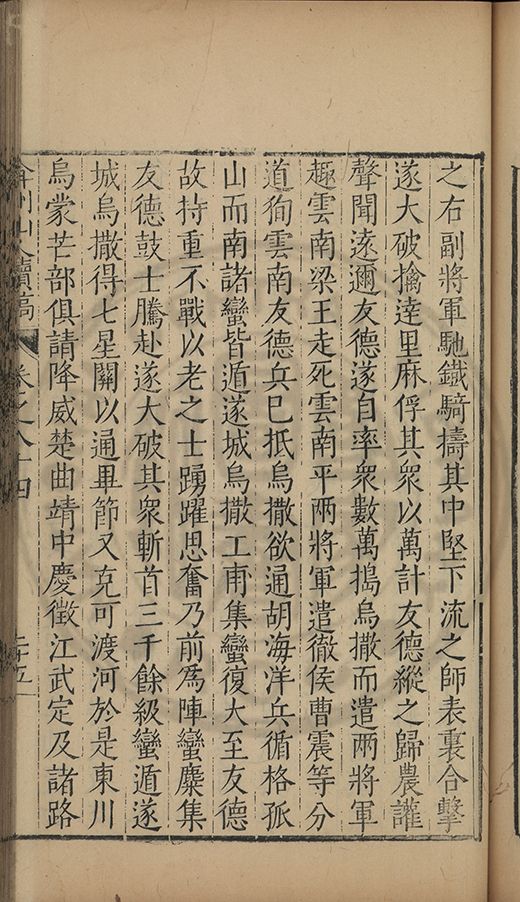 之右副將軍馳鐵騎擣其中堅下流之師表裏合擊
遂大破擒達里麻俘其衆以萬計友德縱之歸農讙
聲聞遠邇友德遂自率衆數萬搗烏撒而遣兩將軍
趨雲南梁王走死雲南平兩將軍遣徹侯曹震等分
道狥雲南友德兵已抵烏撒欲通胡海洋兵循格孤
山而南諸蠻皆遁遂城烏撒工甫集蠻復大至友德
故持重不戰以老之士踴躍思奮乃前爲陣蠻麋集
友德鼓士騰赴遂大破其衆斬首三千餘級蠻遁遂
城烏撒得七星關以通畢節又克可渡河於是東川
烏蒙芒部俱請降威楚曲靖中慶徵江武定及諸路
弇州山人續稿 卷之八十四 二十五